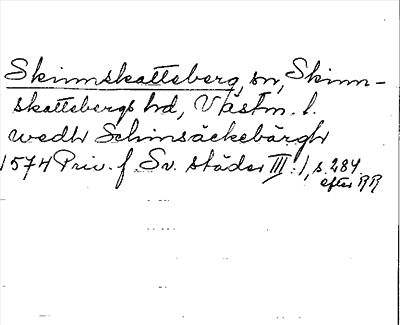 Skinnskatteberg, sn, Skinn-
skattebergs hd, Västm. l.
wedh Schinsäckebärgh
1574 Priv. f. Sv. städer III:1, s. 284.
efter RR